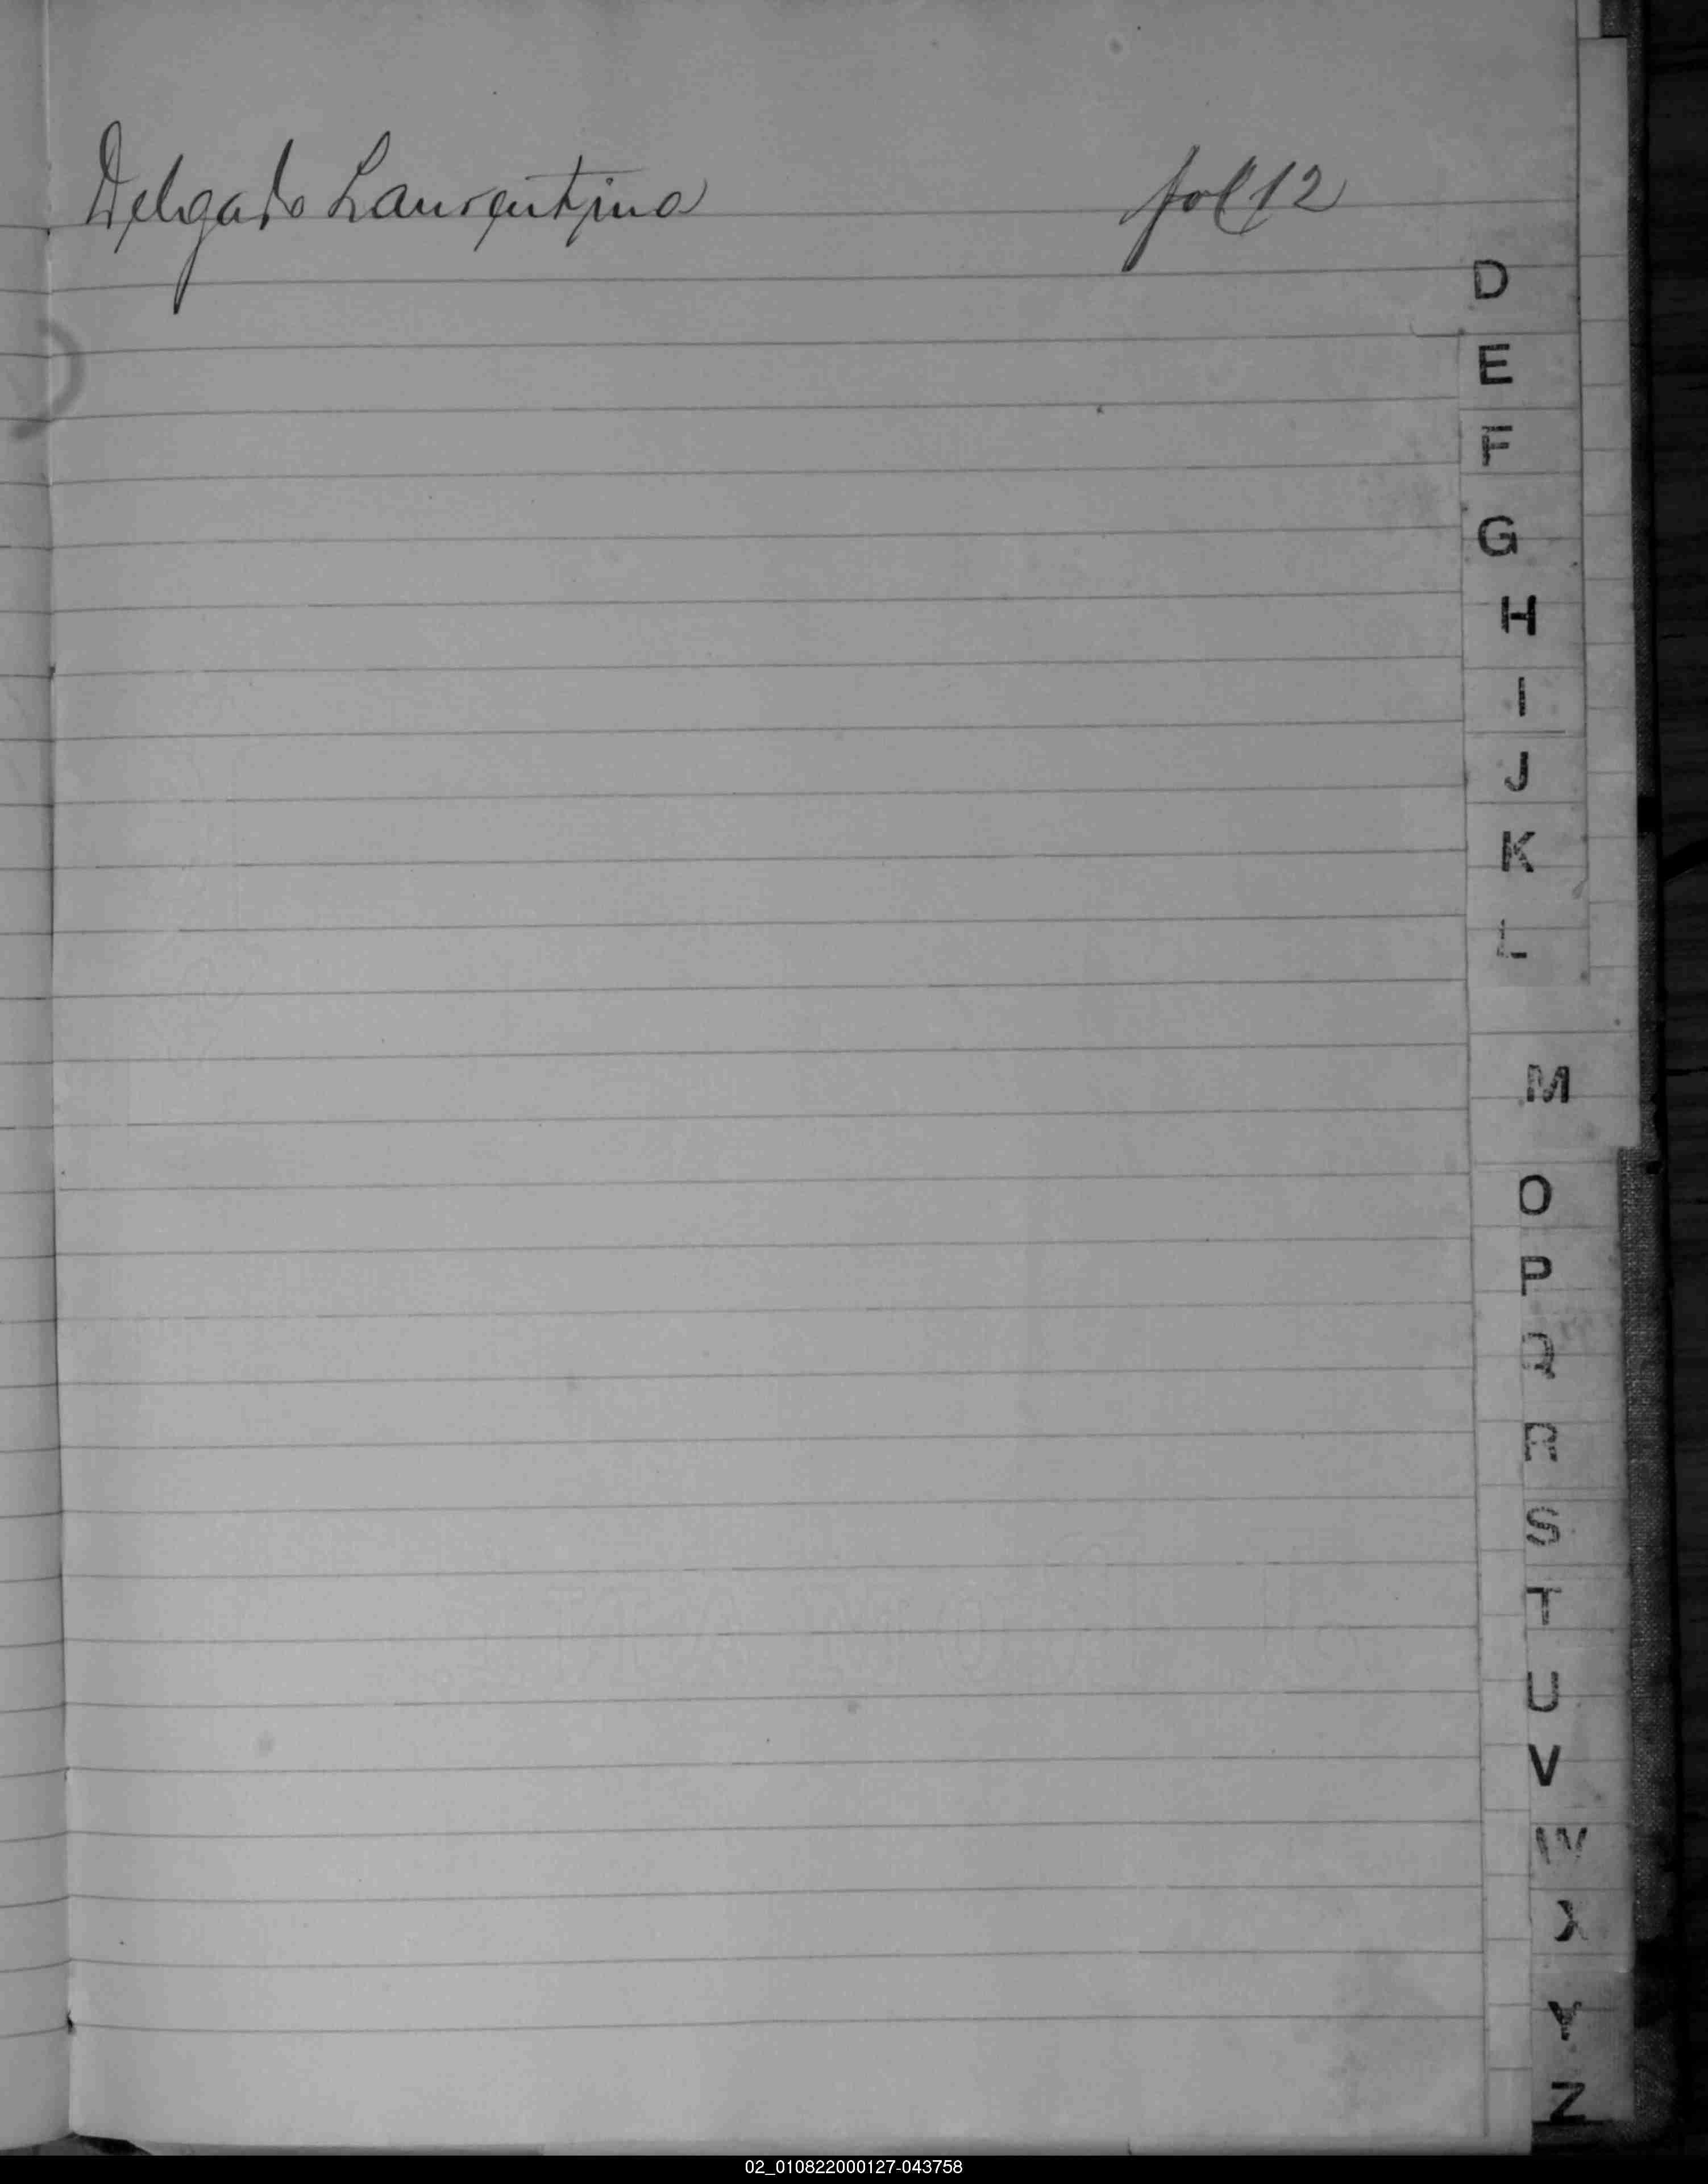 Delgado Laurentino fol 12
D
E
F
G
H
I
J
K
L
M
O
P
Q
R
S
T
U
V
W
X
Y
Z
02_010822000127-043758